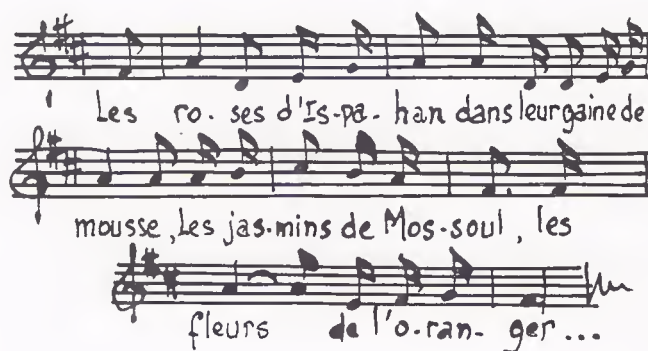 Les ro-ses d'Is-pa-han dans leur gaine de
mousse, Les jas-mins de Mos-soul, les
fleurs de l'o-ran-ger...